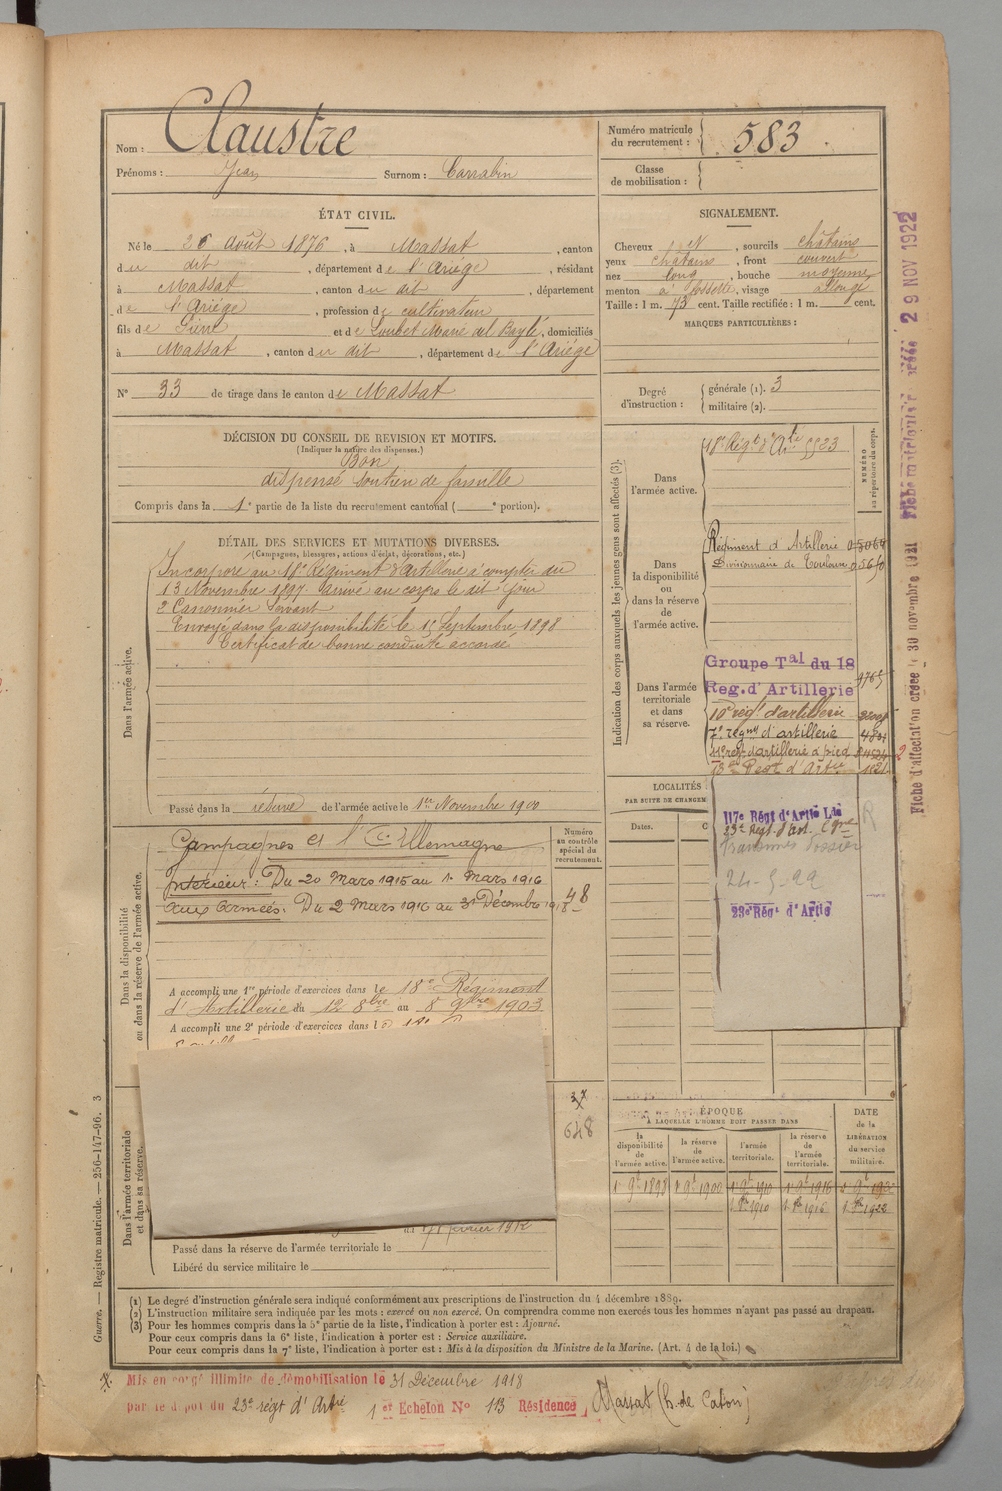 Nom : Claustre
Prénoms : Jean Surnom : Carrabin
Numéro matricule du recrutement : 583
Classe de mobilisation :
ÉTAT CIVIL.
Né le 26 Août 1876, à Massat, canton
du dit, département de l'Ariège, résidant
à Massat, canton du dit, département
de l'Ariège, profession de cultivateur
fils de Pierre et de Loubet Marie del Bayle, domiciliés
à Massat, canton du dit, département de l'Ariège
N° 33 de tirage dans le canton de Massat
SIGNALEMENT.
Cheveux N, sourcils châtains
yeux châtains, front couvert
nez long, bouche moyenne
menton à fossette, visage allongé
Taille : 1 m. 73 cent. Taille rectifiée : 1 m. cent.
MARQUES PARTICULIÈRES :
Degré d'instruction : générale (1). 3
militaire (2).
DÉCISION DU CONSEIL DE REVISION ET MOTIFS.
(Indiquer la nature des dispenses.)
Bon
dispensé soutien de famille
Compris dans la 1e partie de la liste du recrutement cantonal ( e portion).
DÉTAIL DES SERVICES ET MUTATIONS DIVERSES.
(Campagnes, blessures, actions d'éclat, décorations, etc.)
Dans l'armée active.
Incorporé au 18e Régiment d'artillerie à compter du
13 Novembre 1897. Arrivé au corps le dit jour
2e Canonnier servant
Envoyé dans la disponibilité le 15 Septembre 1898
Certificat de bonne conduite accordé
Passé dans la réserve de l'armée active le 1er Novembre 1900
Dans la disponibilité ou dans la réserve de l'armée active.
Campagnes et l' Cie Allemagne
Intérieur : Du 20 Mars 1915 au 1 Mars 1916
aux Armées. Du 2 Mars 1916 au 31 Décembre 1918
Numéro au contrôle spécial du recrutement.
48
A accompli une 1re période d'exercices dans le 18e Régiment
d'Artillerie du 12 8bre au 8 9bre 1903
A accompli une 2e période d'exercices dans l
Dans l'armée territoriale et dans sa réserve.
37
648
février 1912
Passé dans la réserve de l'armée territoriale le
Libéré du service militaire le
Indication des corps auxquels les jeunes gens sont affectés (3).
NUMÉRO au répertoire du corps.
Dans l'armée active.
18e Régt d'Artie 5523
Dans la disponibilité ou dans la réserve de l'armée active.
Régiment d'Artillerie
Divisionnaire de Toulouse
Dans l'armée territoriale et dans sa réserve.
Groupe Tal du 18
Reg. d'Artillerie
10e régt d'artillerie
7e regmt d'artillerie
régt d'artillerie à pied
LOCALITÉS
PAR SUITE DE CHANGEM
Dates.
117e Régt d'Artie Lde
23e Régt d'Art. Cgne
Transmis Dossier
23e Régt d'Artie
R
ÉPOQUE
À LAQUELLE L'HOMME DOIT PASSER DANS
la disponibilité de l'armée active.
la réserve de l'armée active.
l'armée territoriale.
la réserve de l'armée territoriale.
DATE de la LIBÉRATION du service militaire.
1 9bre 1898 1 9bre 1900 1 9bre 1910 1 9bre 1916
1910 1916 1922
(1) Le degré d'instruction générale sera indiqué conformément aux prescriptions de l'instruction du 4 décembre 1889.
(2) L'instruction militaire sera indiquée par les mots : exercé ou non exercé. On comprendra comme non exercés tous les hommes n'ayant pas passé au drapeau.
(3) Pour les hommes compris dans la 5e partie de la liste, l'indication à porter est : Ajourné.
Pour ceux compris dans la 6e liste, l'indication à porter est : Service auxiliaire.
Pour ceux compris dans la 7e liste, l'indication à porter est : Mis à la disposition du Ministre de la Marine. (Art. 4 de la loi.)
Mis en congé illimité de démobilisation le 31 Décembre 1918
par le dépôt du 23e régt d'Artie 1er Echelon N° 113 Résidence Massat
Guerre. — Registre matricule. — 256-147-96. 3
Fiche matricule créée 29 NOV 1922
Fiche d'affectation créée le 30 novembre 1921